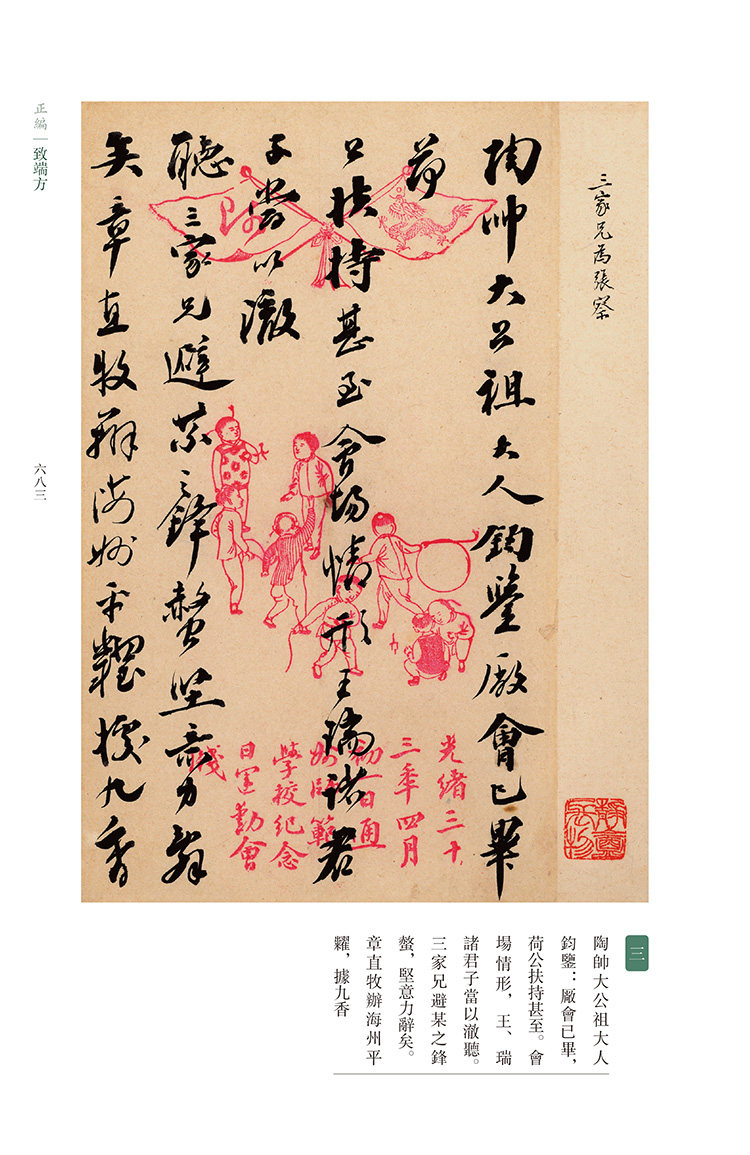 三家兄為張詧
陶帥大公祖大人鈞鑒厰會已畢
荷
公扶持甚至會場情形王瑞諸君
子當以澈
聽三家兄避某之鋒螯堅意力辭
矣章直牧辦海州平糶據九香
光緒三十
三年四月
初一日通
州師範
學校紀念
日運動會
箋
三
陶帥大公祖大人
鈞鑒：厰會已畢，
荷公扶持甚至。會
場情形，王、瑞
諸君子當以澈聽。
三家兄避某之鋒
螯，堅意力辭矣。
章直牧辦海州平
糶，據九香
正編｜致端方
六八三